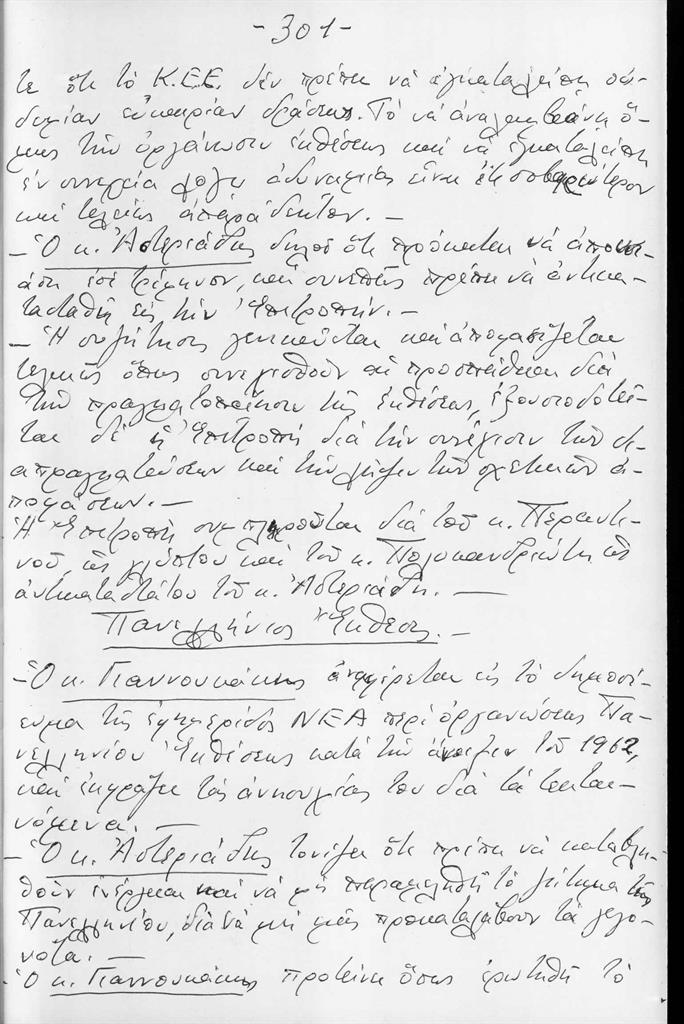 -301-
τε ὅτι τὸ Κ.Ε.Ε. δέν πρέπει νὰ ἐγκαταλείπη οὐ-
δεμίαν εὐκαιρίαν δράσεως. Τὸ νὰ ἀναλαμβάνη ὅ-
μως τὴν ὀργάνωσιν ἐκθέσεως καὶ νὰ ἐγκαταλείπη
ἐν συνεχεία λόγω ἀδυναμίας εἶναι ἔτι σοβαρώτερον
καὶ τελείως ἀπαράδεκτον. —
- Ὁ κ. Ἀστεριάδης δηλοῖ ὅτι πρόκειται νὰ ἀπουσι-
άση ἐπὶ τρίμηνον, καὶ συνεπῶς πρέπει νὰ ἀντικα-
τασταθῆ εἰς τὴν Ἐπιτροπήν. —
- Ἡ συζήτησις γενικεύεται καὶ ἀποφασίζεται
τελικῶς ὅπως συνεχισθοῦν αἱ προσπάθειαι διὰ
τὴν πραγματοποίησιν τῆς ἐκθέσεως, ἐξουσιοδοτεῖ-
ται δὲ ἡ Ἐπιτροπὴ διὰ τὴν συνέχισιν τῶν δι-
απραγματεύσεων καὶ τὴν λῆψιν τῶν σχετικῶν ἀ-
ποφάσεων. —
Ἡ Ἐπιτροπὴ συμπληροῦται διὰ τοῦ κ. Περαντι-
νοῦ, ὡς γλύπτου καὶ τοῦ κ. Πολυκανδριώτη ὡς
ἀντικαταστάτου τοῦ κ. Ἀστεριάδη. —
Πανελλήνιος Ἔκθεσις. —
- Ὁ κ. Γιαννουκάκης ἀναφέρεται εἰς τὸ δημοσί-
ευμα τῆς ἐφημερίδος ΝΕΑ περὶ ὀργανώσεως Πα-
νελληνίου Ἐκθέσεως κατὰ τὴν ἄνοιξιν τοῦ 1962,
καὶ ἐκφράζει τὰς ἀνησυχίας του διὰ τὰ τεκται-
νόμενα. —
- Ὁ κ. Ἀστεριάδης τονίζει ὅτι πρέπει νὰ καταβλη-
θοῦν ἐνέργειαι καὶ νὰ μὴ παραμεληθῆ τὸ ζήτημα τῆς
Πανελληνίου, διὰ νὰ μὴ μᾶς προκαταλάβουν τὰ γεγο-
νότα. —
- Ὁ κ. Γιαννουκάκης προτείνει ὅπως ἐρωτηθῆ τὸ